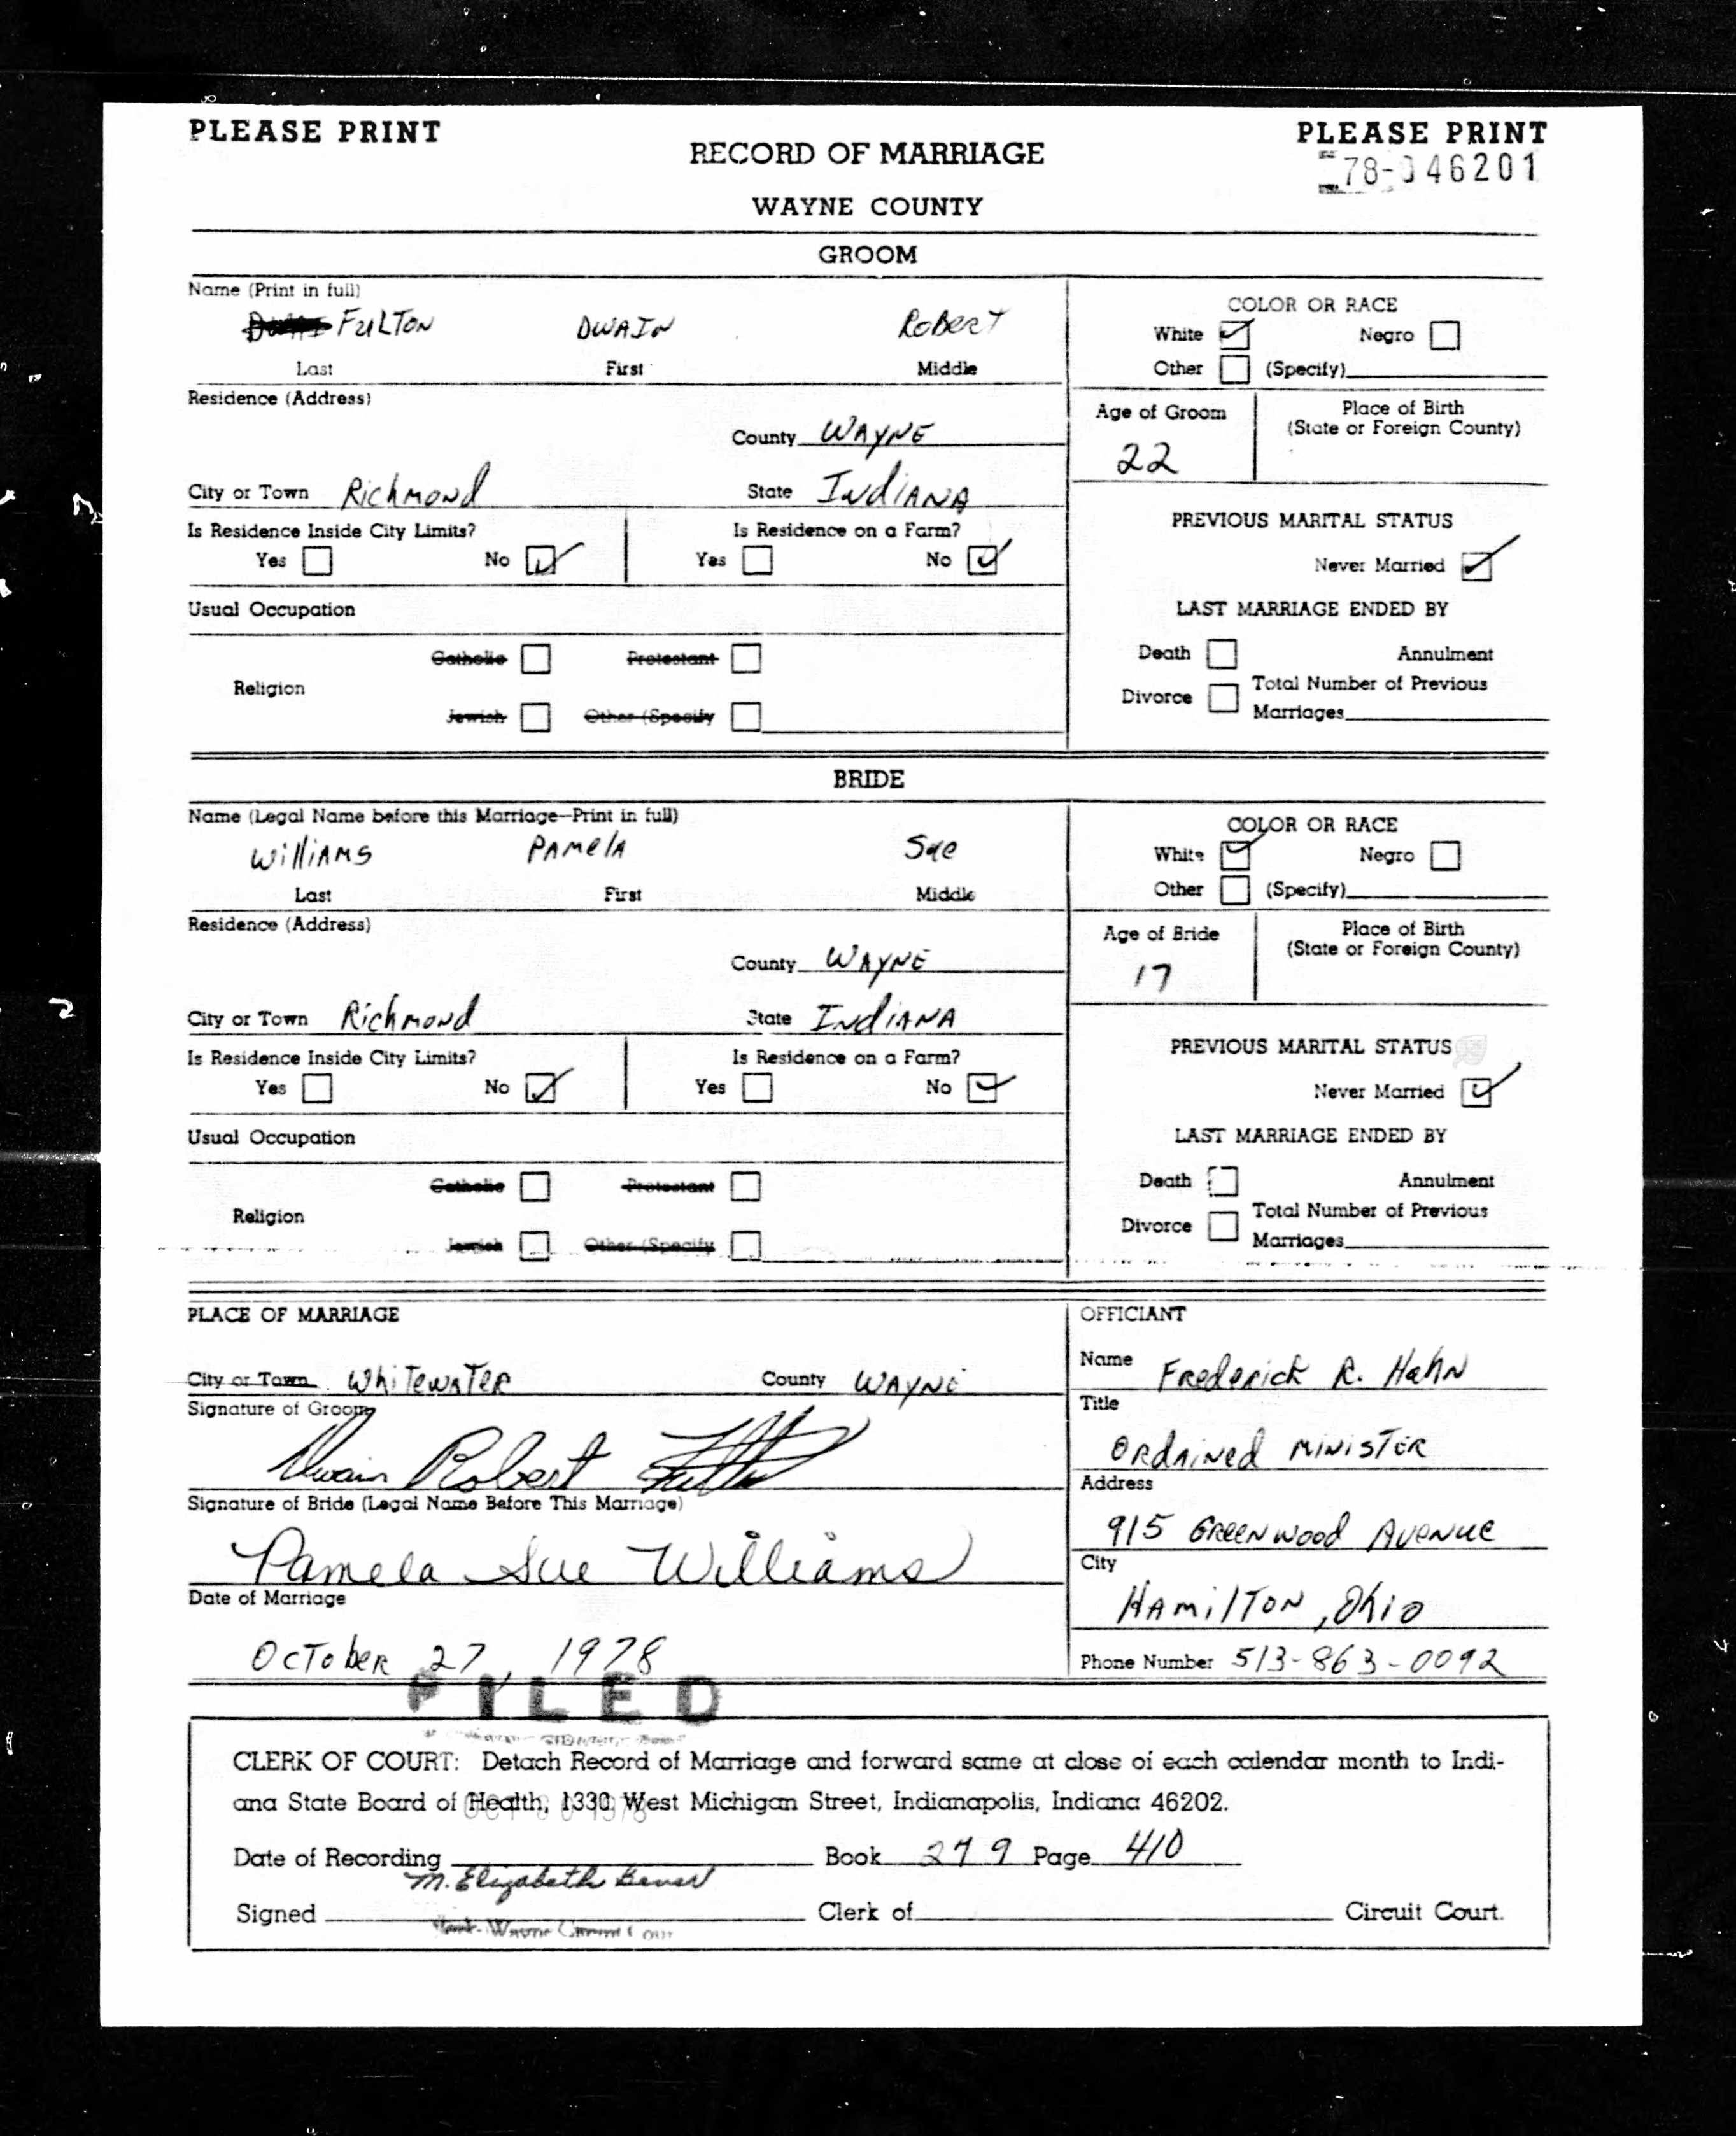 PLEASE PRINT
PLEASE PRINT
RECORD OF MARRIAGE
78-046201
WAYNE COUNTY
GROOM
Name (Print in full)
FULTON DWAIN Robert
Last First Middle
COLOR OR RACE
White Negro
Other (Specify)
Residence (Address)
County WAYNE
City or Town Richmond State INdiANA
Age of Groom
22
Place of Birth
(State or Foreign County)
Is Residence Inside City Limits?
Yes No
Is Residence on a Farm?
Yes No
PREVIOUS MARITAL STATUS
Never Married
Usual Occupation
LAST MARRIAGE ENDED BY
Death Annulment
Divorce Total Number of Previous
Marriages
Religion
Catholic Protestant
Jewish Other (Specify
BRIDE
Name (Legal Name before this Marriage—Print in full)
WilliAMS PAMelA Sue
Last First Middle
COLOR OR RACE
White Negro
Other (Specify)
Residence (Address)
County WAYNE
City or Town Richmond State INdiANA
Age of Bride
17
Place of Birth
(State or Foreign County)
Is Residence Inside City Limits?
Yes No
Is Residence on a Farm?
Yes No
PREVIOUS MARITAL STATUS
Never Married
Usual Occupation
LAST MARRIAGE ENDED BY
Death Annulment
Divorce Total Number of Previous
Marriages
Religion
Catholic Protestant
Jewish Other (Specify
PLACE OF MARRIAGE
City or Town WhiTewATeR County WAYNE
Signature of Groom
Dwain Robert Fulton
Signature of Bride (Legal Name Before This Marriage)
Pamela Sue Williams
Date of Marriage
OcTobeR 27, 1978
OFFICIANT
Name Frederick R. Hahn
Title
Ordained MINISTER
Address
915 GReenwood Avenue
City
HAmilTON, Ohio
Phone Number 513-863-0092
FILED
CLERK OF COURT: Detach Record of Marriage and forward same at close of each calendar month to Indi-
ana State Board of Health, 1330 West Michigan Street, Indianapolis, Indiana 46202.
OCT 30 1978
Date of Recording Book 279 Page 410
M. Elizabeth
Signed Clerk of Circuit Court.